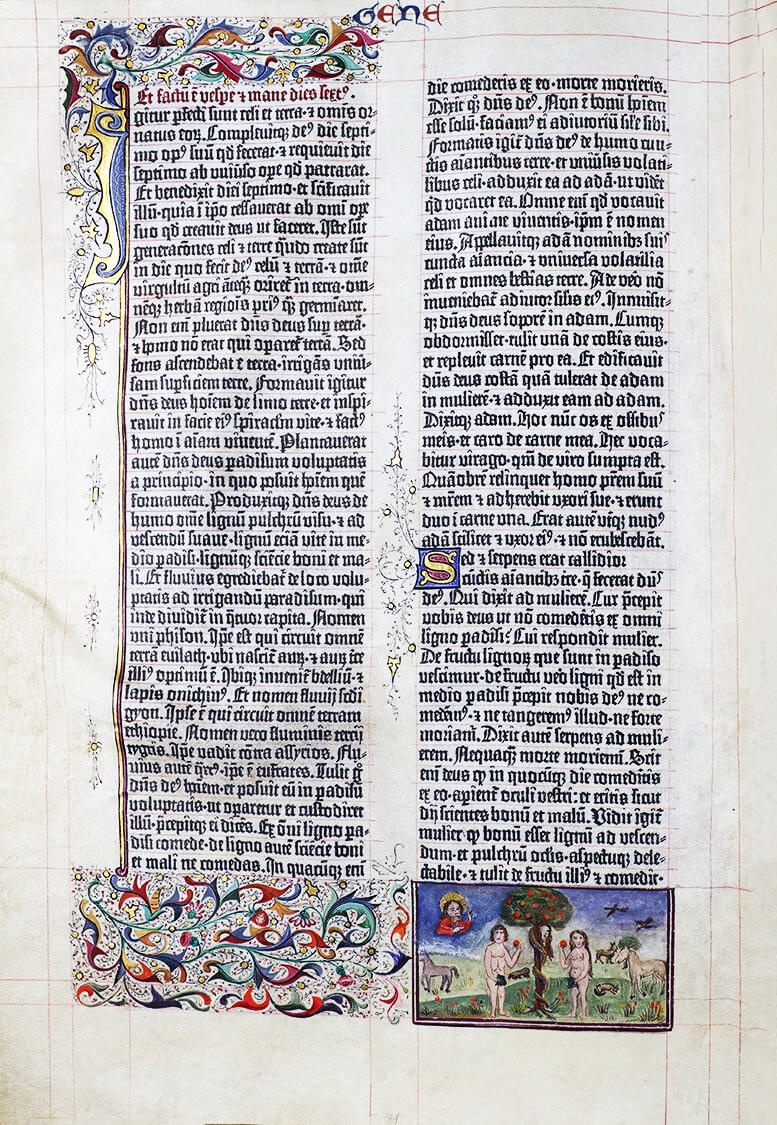 GENE
Et factū ē vespe ⁊ mane dies sextꝰ.
Igitur ꝑfecti sunt celi et terra·⁊ omīs or-
natus eoꝝ. Complevitqꝫ deꝰ die septi-
mo opꝰ suū qd fecerat·⁊ requievit die
septimo ab univiso ope qd patrarat.
Et benedixit diei septimo·et sc̄ificavit
illū·quia ī ip̄o cessaverat ab omī ope
suo qd creavit deus ut faceret. Iste sūt
generacōnes celi ⁊ terre qn̄do create sūt
in die quo fecit deꝰ celū ⁊ terrā·⁊ om̄e
virgultū agri āteqꝫ orirēt in terra·om-
nēqꝫ herbā regiois priꝰ qꝫ germiaret.
Non em̄ pluerat dn̄s deus sup terrā·
⁊ homo nō erat qui oparēt terrā. Sed
fons ascendebat e terra·irrigās univ̄-
sam supficiem terre. Formavit igitur
dn̄s deus hoīem de limo terre·et inspi-
ravit in facie eiꝰ spiraclm vite·⁊ factꝰ ē
homo ī aīam viventē. Plantaverat
autē dn̄s deus padisum voluptatis
a principio·in quo posuit hoīem quē
formaverat. Produxitqꝫ dn̄s deus de
humo om̄e lignū pulchrū visu·⁊ ad
vescendū suave·lignū ecīā vite in me-
dio padisi·lignūqꝫ sciēcie boni et ma-
li. Et fluvius egrediebaī de loco volu-
ptatis ad irrigandū paradisum·qui
inde dividiē in q̄tuor capita. Nomen
uni phison. Ip̄e est qui circuit omnē
terrā evilach·ubi nasciē auꝝ·⁊ auꝝ t̄re
illiꝰ optimū ē. Ibiqꝫ invenīē bdelliū·⁊
lapis onichinꝰ. Et nomen fluvij sc̄di
gyon. Ipse ē qui circuit omnē terram
ethiopie. Nomen vero fluminis tercij
tygris. Ip̄e vadit cōtra assyrios. Flu-
vius autē q̄rtꝰ·ip̄e ē eufrates. Tulit g̊
dn̄s deꝰ hoīem·et posuit eū in padisū
voluptatis·ut oparetur et custodiret
illū·p̄cepitqꝫ ei dicēs. Ex ōni ligno pa-
disi comede·de ligno autē sciēcie boni
et mali ne comedas. In quacūqꝫ em̄
die comederis ex eo·morte morieris.
Dixit qꝫ dn̄s deꝰ. Non ē bonū hoīem
esse solū·faciamꝰ ei adiutoriū sil̄e sibi.
Formatis igit̄ dn̄s deꝰ de humo cun-
ctis aīantibus terre·et univ̄sis volati-
libus celi·adduxit ea ad adā·ut vidēt
qd vocaret ea. Omne em̄ qd vocavit
adam anime viventis·ip̄m ē nomen
eius. Appellavitqꝫ adā nominibꝫ suiꝰ
cuncta aīancia·⁊ universa volatilia
celi et omnes bestias terre. Ade veo nō
inveniebat̄ adiutor silis eiꝰ. Inmisit-
qꝫ dn̄s deus soporē in adam. Cumqꝫ
obdormisset·tulit unā de costis eius·
et replevit carnē pro ea. Et edificavit
dn̄s deus costā quā tulerat de adam
in mulierē·⁊ adduxit eam ad adam.
Dixitqꝫ adam. Hoc nūc os ex ossibuꝰ
meis·et caro de carne mea. Hec voca-
bitur virago·qm̄ de viro sumpta est.
Quāobrē relinquet homo pr̄em suū
⁊ mr̄em·⁊ adherebit uxori sue·⁊ erunt
duo ī carne una. Erat autē uterqꝫ nudꝰ
adā scilicet ⁊ uxor eiꝰ·⁊ nō erubescebāt.
Sed ⁊ serpens erat callidior
cūctis aīantibꝫ t̄re·q̄ fecerat dn̄s
deꝰ. Qui dixit ad mulierē. Cur p̄cepit
vobis deus ut nō comederēt̄ ex omni
ligno padisi? Cui respondit mulier.
De fructu lignoꝝ que sunt in padiso
vescimur·de fructu veo ligni qd est in
medio padisi p̄cepit nobis deꝰ ne co-
mederemꝰ·⁊ ne tangeremꝰ illud·ne forte
moriamr̄. Dixit autē serpens ad muli-
erem. Nequaqꝫ morte moriemī. Scit
em̄ deus qꝫ in quocūqꝫ die comeditis
ex eo·apient̄ oculi vestri: et eritis sicut
dij scientes bonū et malū. Vidit igit̄
mulier qꝫ bonū esset lignū ad vescen-
dum·et pulchrū oclis·aspectuqꝫ dele-
ctabile·⁊ tulit de fructu illiꝰ ⁊ comedit·